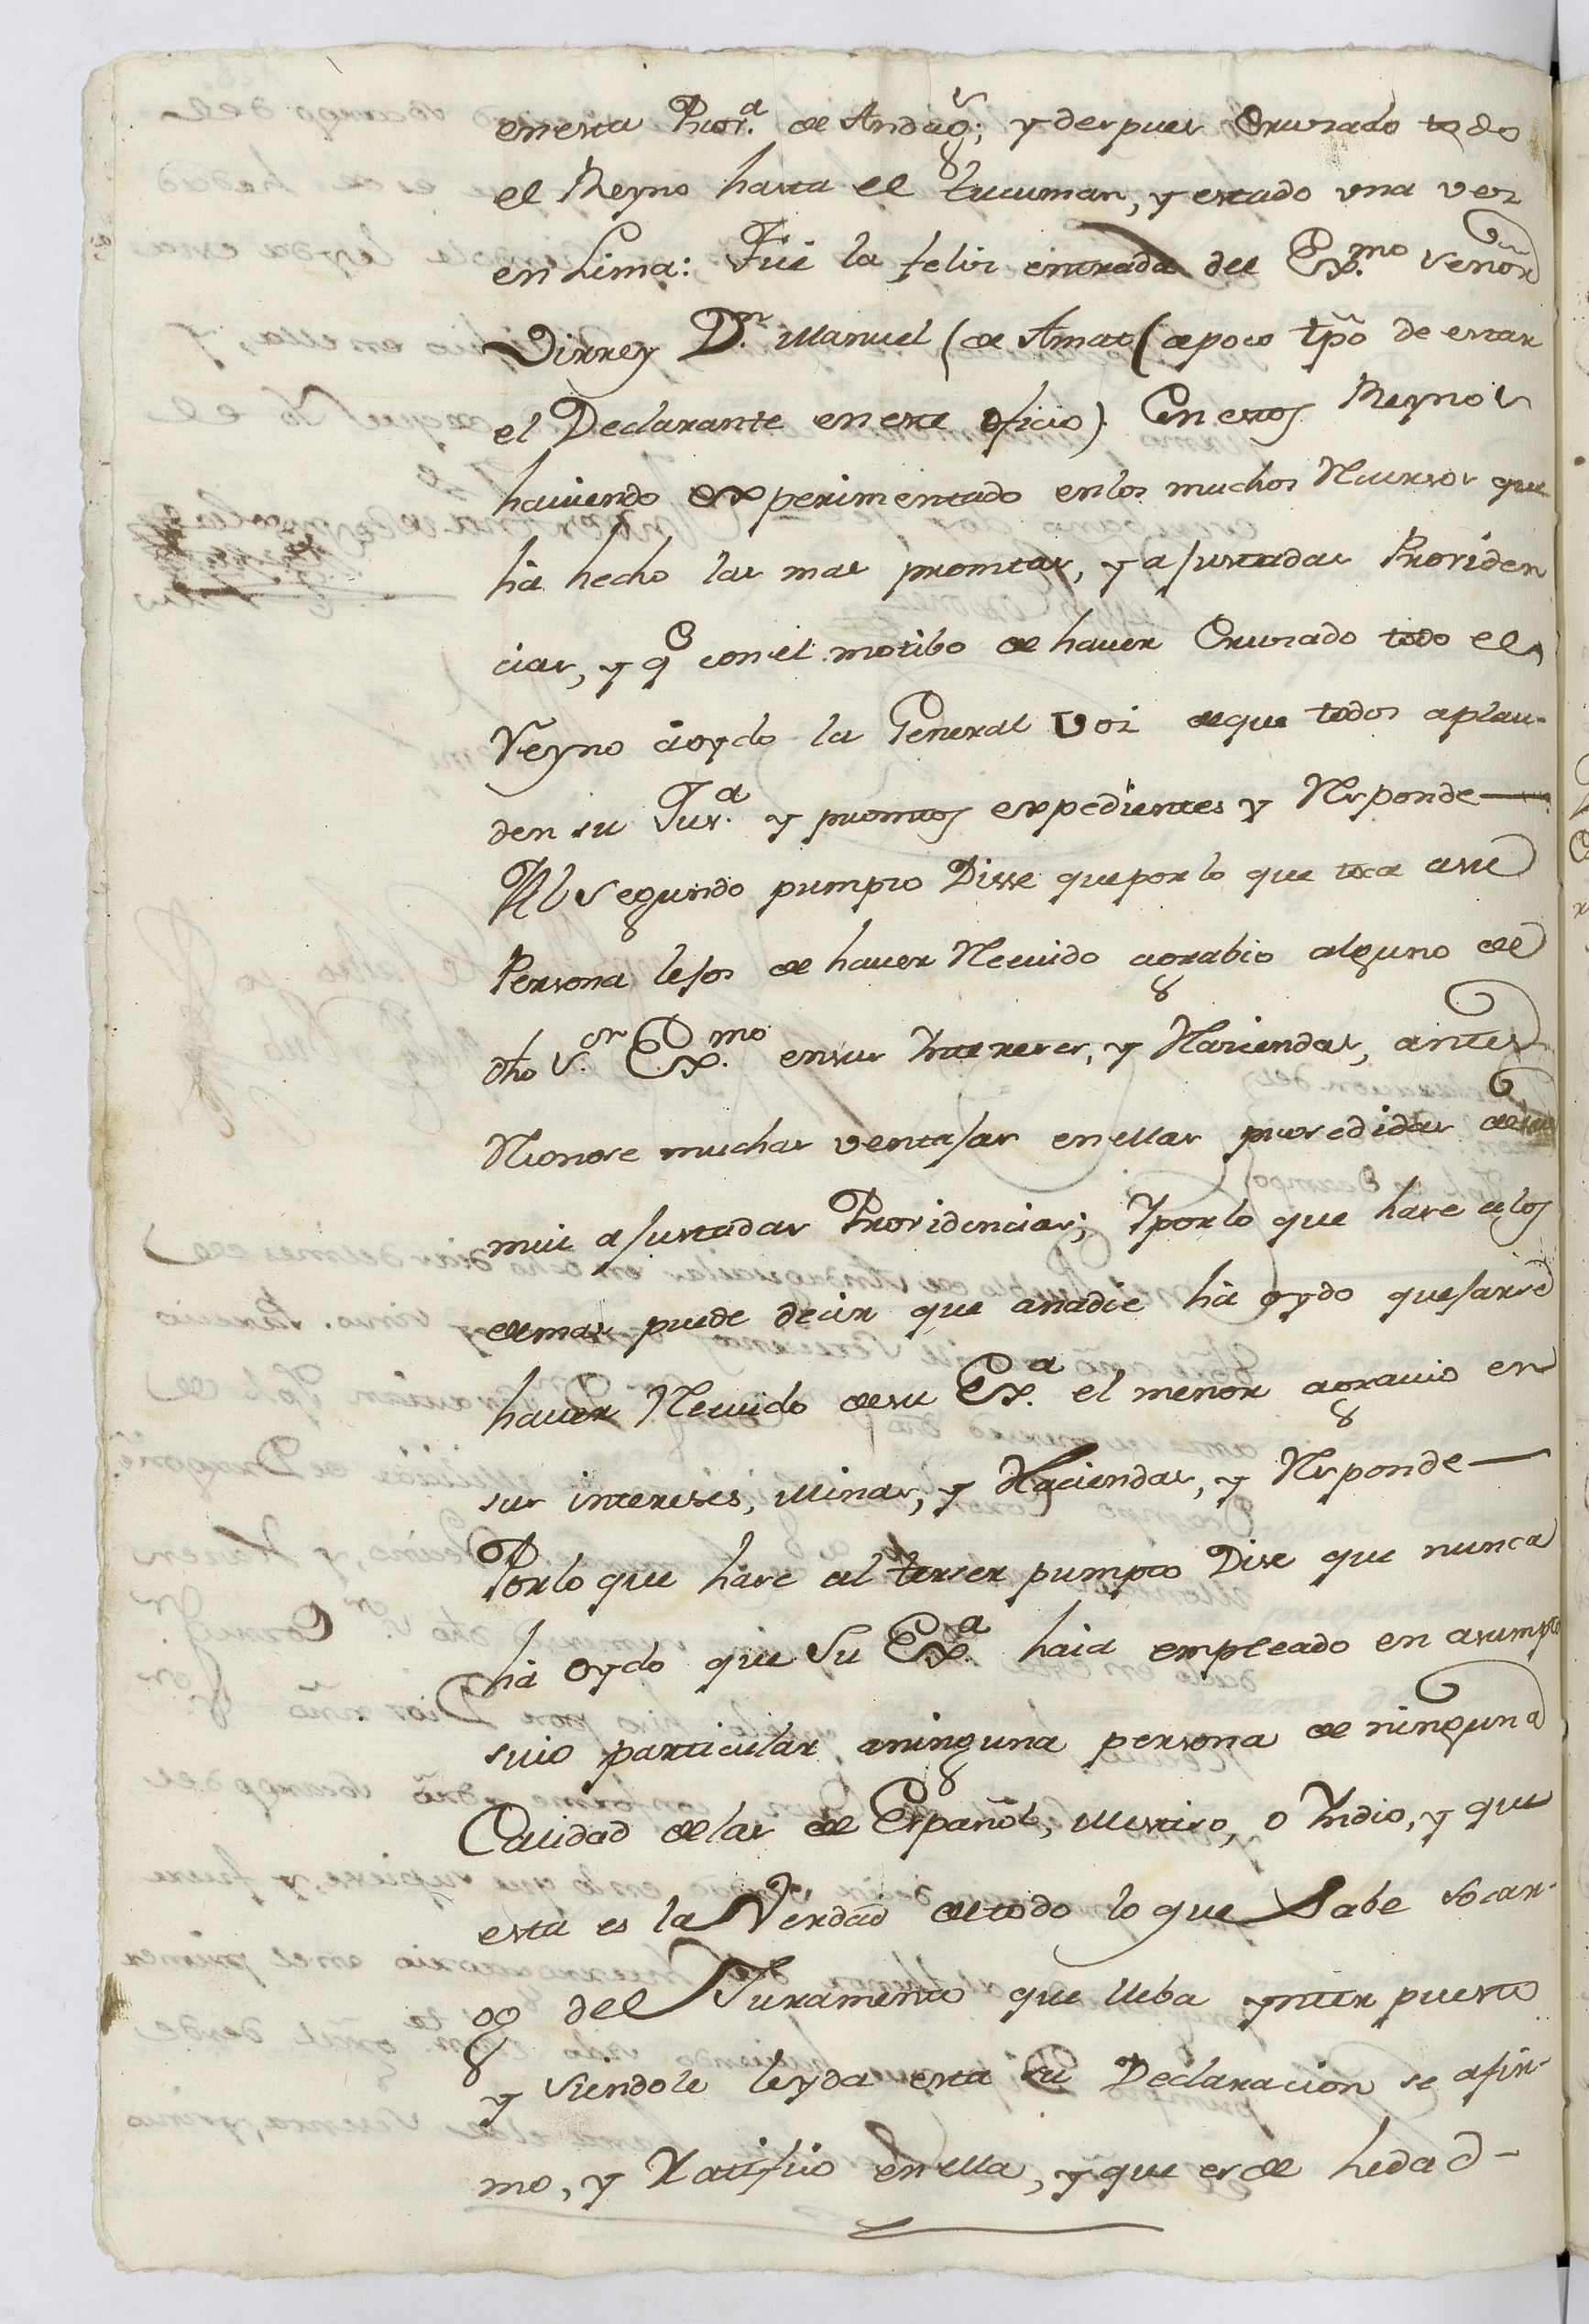 en esta Prov.ª de Andag.s; y despues Crusado todo
el Reyno hasta el Tucuman, y estado una vez
en Lima: Fue la felis entrada del Ex.mo Señor
Virrey D.n Manuel (de Amat (apoco tpõ de estar
el Declarante en este oficio). En estos Reynos
haviendo experimentado en los muchos Recursos que
há hecho las mas promtas, y ajustadas Providen
cias, y q con el motibo de haver Crusado todo el
Reyno á oydo la General Vos de que todos aplau-
den su Jus.ª y promtos expedientes y Responde —
Al Segundo pumpto Disse que por lo que toca asu
Persona lejos de haver Recivido agrabio alguno de
dho S.or Ex.mo en sus Intereses, y Haciendas, antes
Reconose muchas ventajas en ellas procedidas de sus
mui ajustadas Providencias; Y por lo que hase a los
demas puede decir que anadie há oydo quejarse
haver Recivido de su Ex.ª el menor agravio en
sus intereses, Minas, y Haciendas, y Responde —
Por lo que hase al terser pumpto Dise que nunca
há oydo que Su Ex.ª haia empleado en asumpto
suio particular aninguna persona de ninguna
Calidad de las de Español, Mestiso, o Yndio, y que
esta es la Verdad de todo lo que Sabe socar-
go del Juramento que lleba ynterpuesto
y siendole leyda esta su Declaracion se afir-
mo, y Ratifico en ella, y que es de hedad -